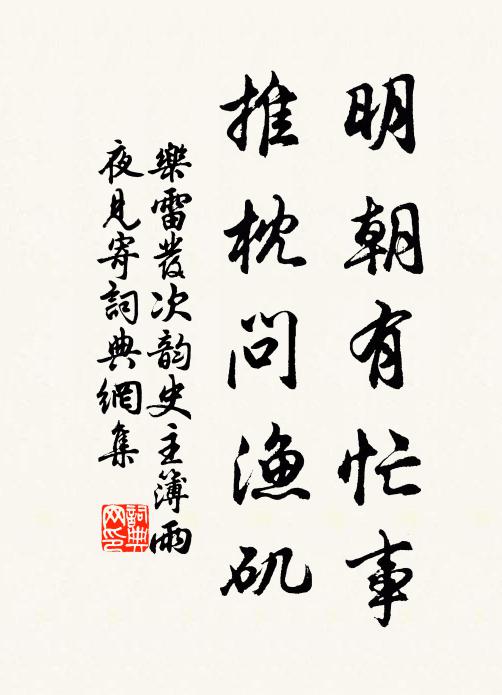 明朝有忙事
推枕問漁矶
樂雷發次韵史主簿雨
夜見寄詞典網集
詞典
网印